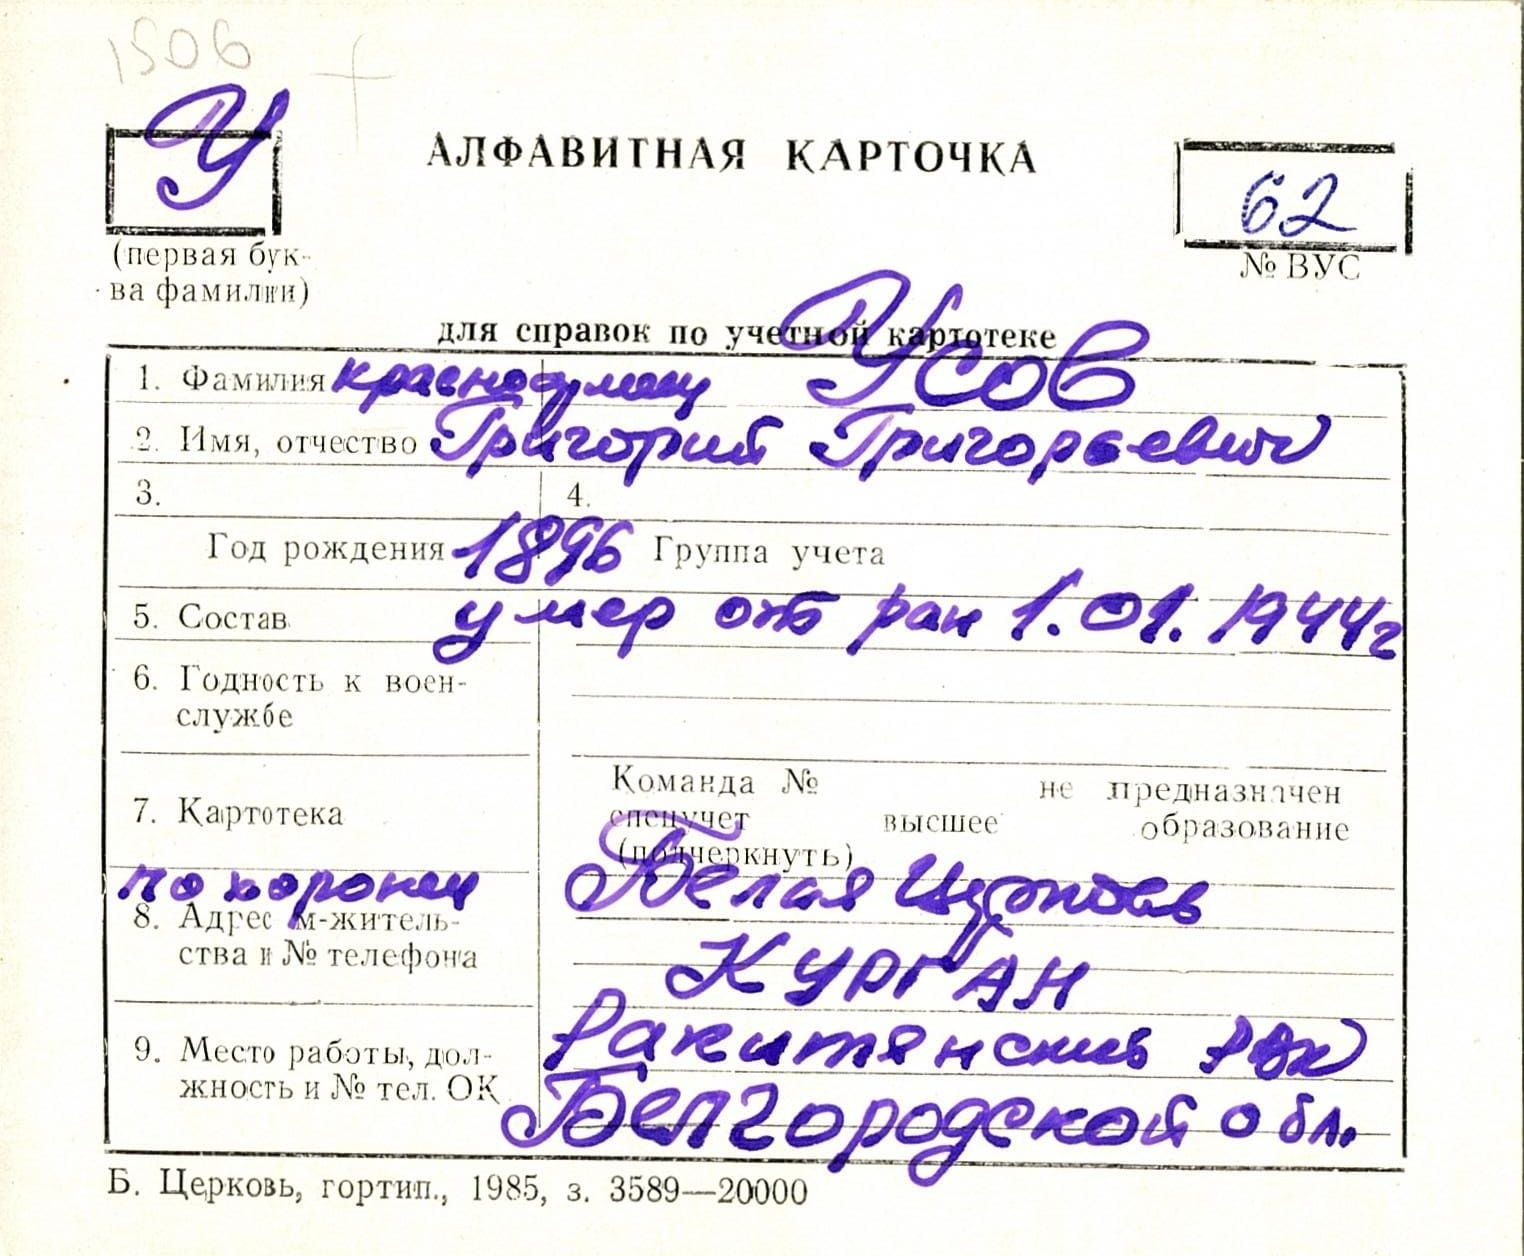 1506
У
АЛФАВИТНАЯ КАРТОЧКА
62
(первая бук-
ва фамилии)
№ ВУС
для справок по учетной картотеке
1. Фамилия красноармеец Усов
2. Имя, отчество Григорий Григорьевич
3. 4.
Год рождения 1896 Группа учета
5. Состав умер от ран 1.01.1944г
6. Годность к воен-
службе
Команда № не предназначен
7. Картотека
спецучет высшее образование
(подчеркнуть)
похоронен Белая Церковь
8. Адрес м-житель-
ства и № телефона
Курган
Ракитянский РВК
9. Место работы, дол-
жность и № тел. ОК
Белгородской обл.
Б. Церковь, гортип., 1985, з. 3589—20000